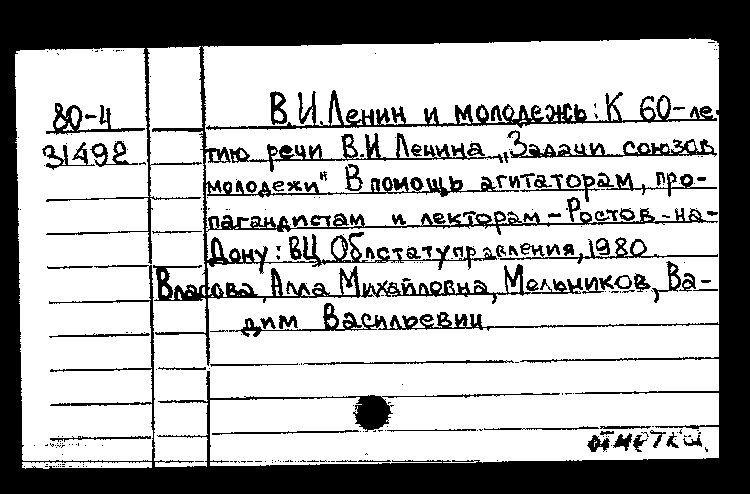 80-4
31492
В.И.Ленин и молодежь: К 60-ле-
тию речи В.И. Ленина „Задачи союзов
молодежи" В помощь агитаторам, про-
пагандистам и лекторам.-Ростов-на-
Дону: ВЦ Облстатуправления, 1980
Власова, Алла Михайловна, Мельников, Ва-
дим Васильевич.
отметки.